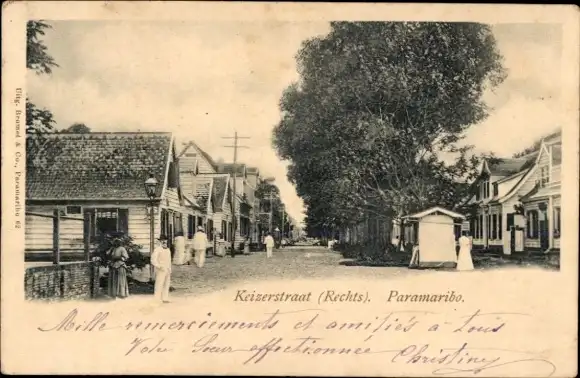 Uitg. Brumel & Co., Paramaribo 62
Keizerstraat (Rechts). Paramaribo.
Mille remerciements et amitiés à tous
Votre Sœur affectionnée Christine